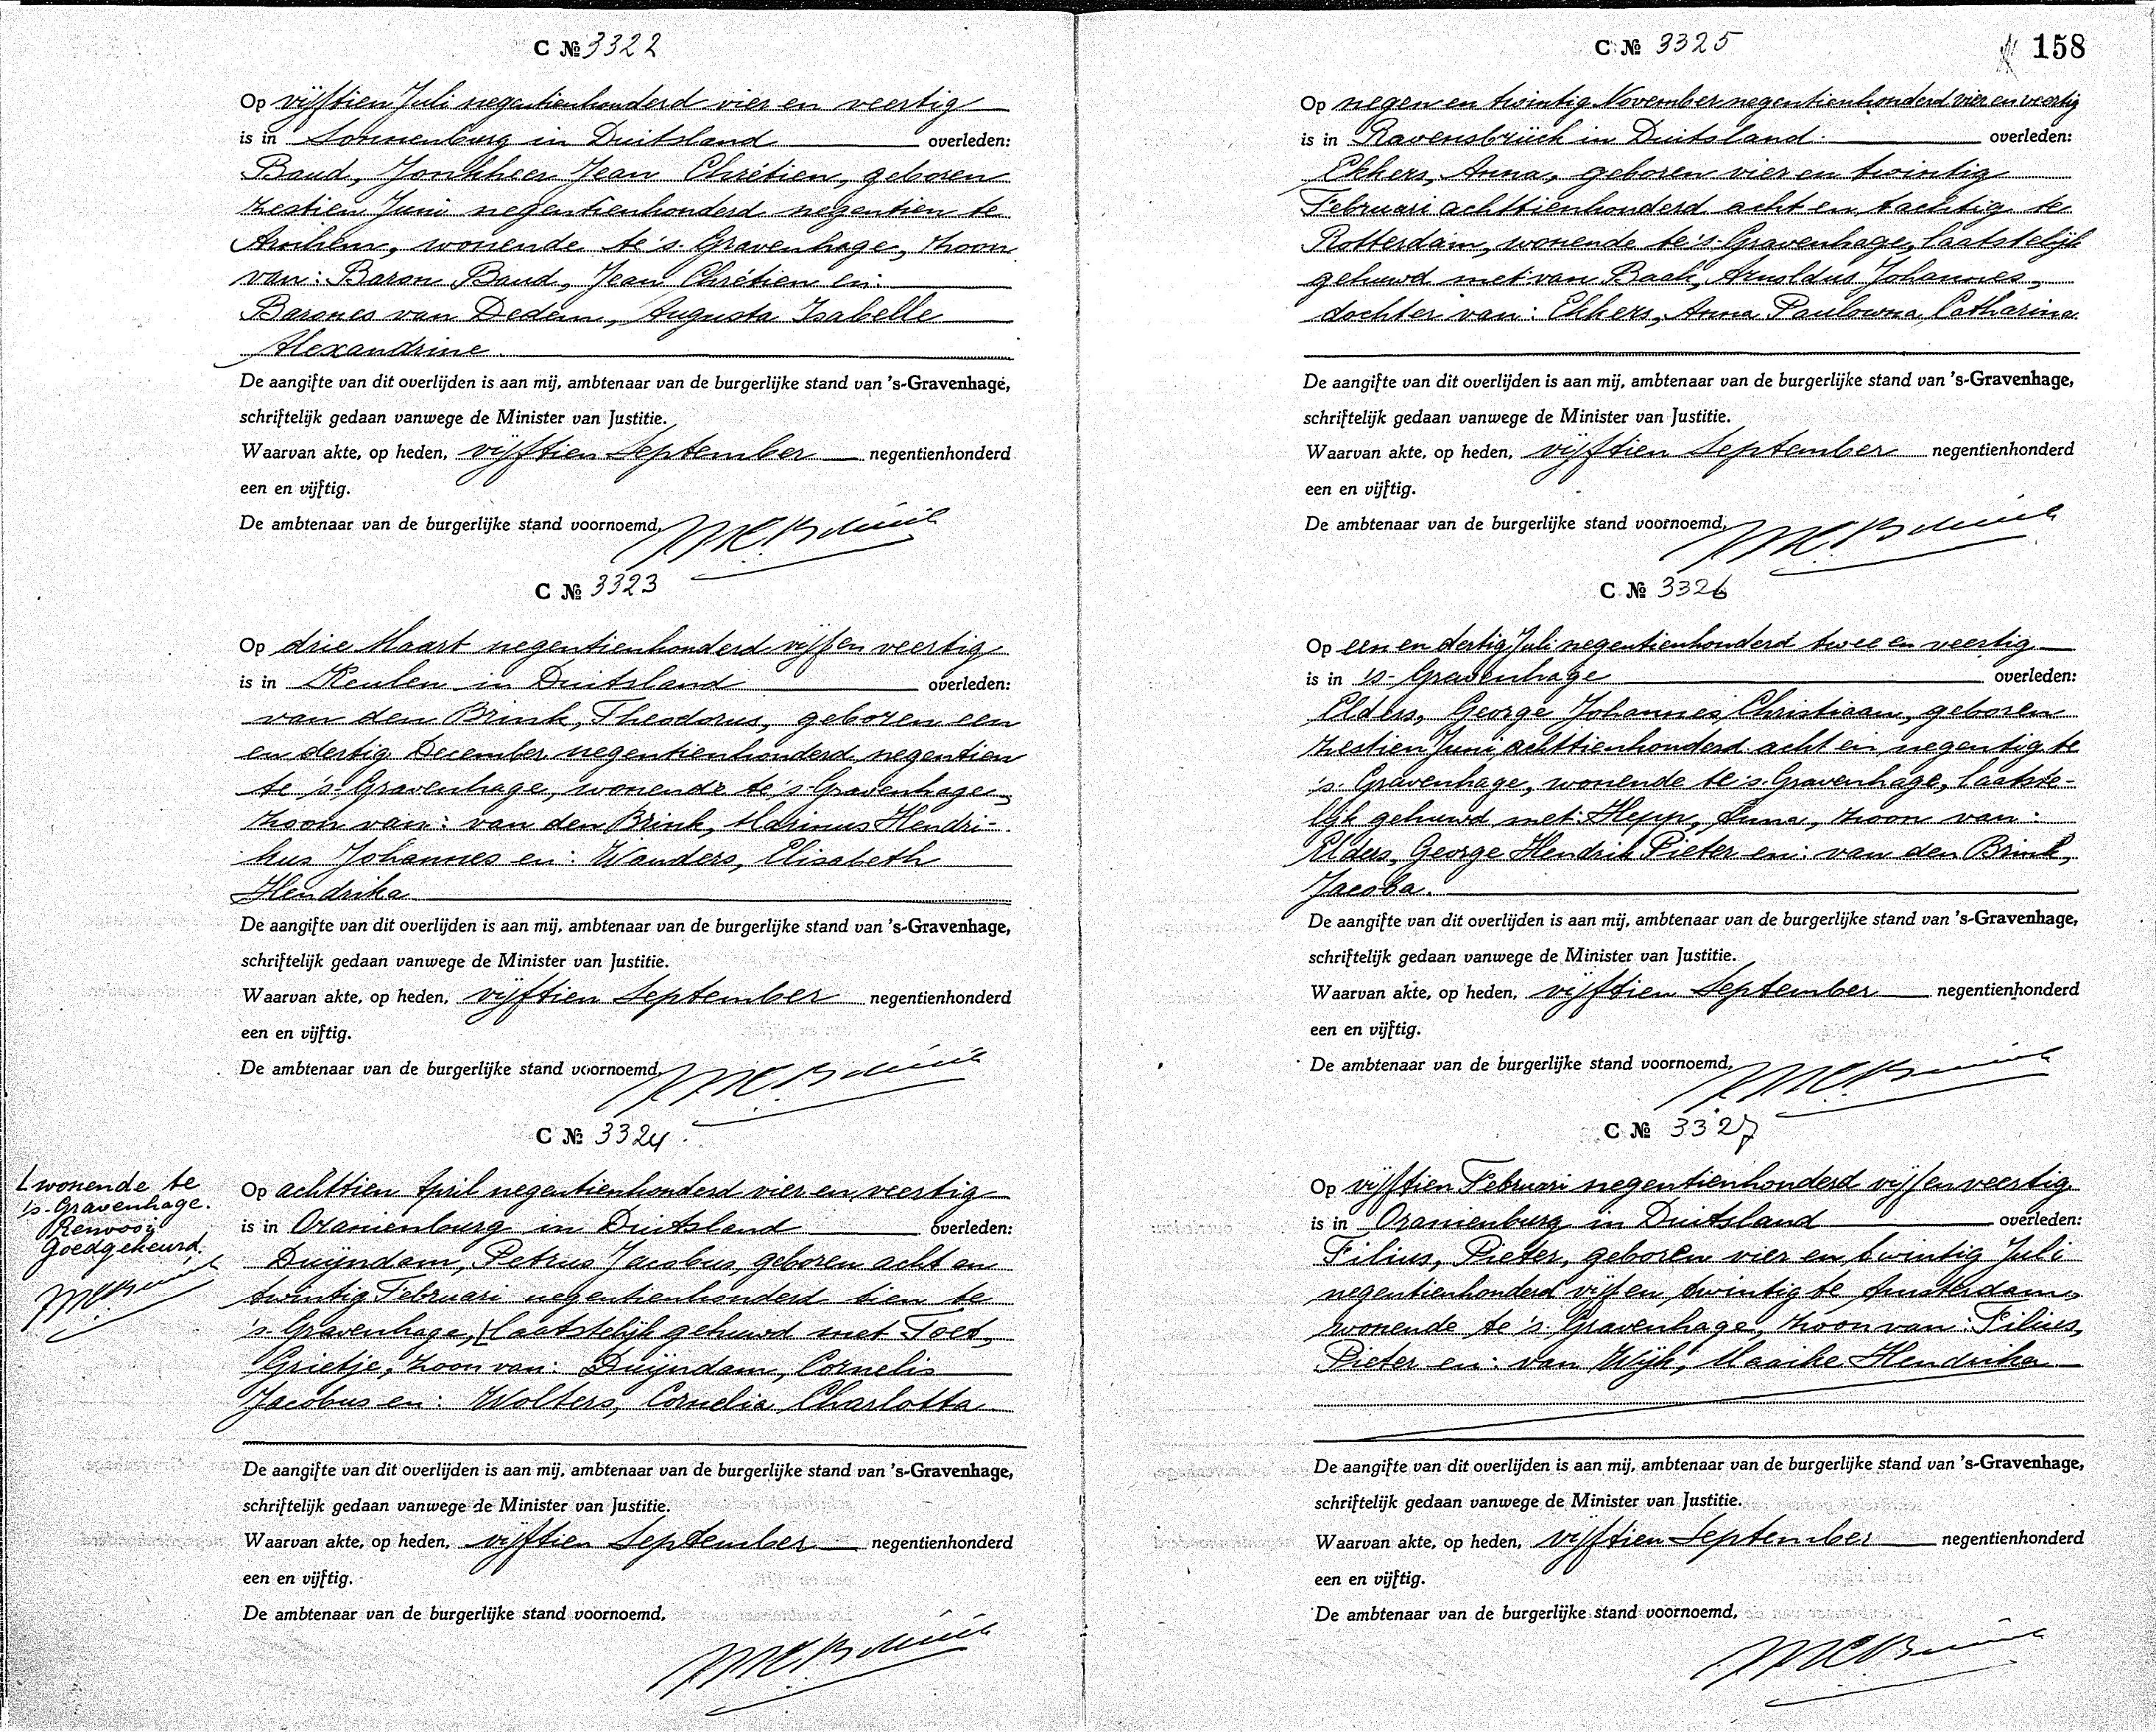 C № 3322
Op vijftien Juli negentienhonderd vier en veertig
is in Sonnenburg in Duitsland overleden:
Baud, Jonkheer Jean Chrétien, geboren
zestien Juni negentienhonderd negentien te
Arnhem, wonende te 's-Gravenhage, zoon
van: Baron Baud, Jean Chrétien en:
Barones van Dedem, Augusta Isabelle
Alexandrine.
De aangifte van dit overlijden is aan mij, ambtenaar van de burgerlijke stand van 's-Gravenhage,
schriftelijk gedaan vanwege de Minister van Justitie.
Waarvan akte, op heden, vijftien September negentienhonderd
een en vijftig.
De ambtenaar van de burgerlijke stand voornoemd,
C № 3323
Op drie Maart negentienhonderd vijf en veertig
is in Keulen in Duitsland overleden:
van den Brink, Theodorus, geboren een
en dertig December negentienhonderd negentien
te 's-Gravenhage, wonende te 's-Gravenhage,
zoon van: van den Brink, Marinus Hendri-
kus Johannes en: Wanders, Elisabeth
Hendrika
De aangifte van dit overlijden is aan mij, ambtenaar van de burgerlijke stand van 's-Gravenhage,
schriftelijk gedaan vanwege de Minister van Justitie.
Waarvan akte, op heden, vijftien September negentienhonderd
een en vijftig.
De ambtenaar van de burgerlijke stand voornoemd,
C № 3324.
wonende te
's-Gravenhage.
Renvooi
Goedgekeurd.
Op achttien April negentienhonderd vier en veertig
is in Oranienburg in Duitsland overleden:
Duijndam, Petrus Jacobus, geboren acht en
twintig Februari negentienhonderd tien te
's-Gravenhage, laatstelijk gehuwd met Toet,
Grietje, zoon van: Duijndam, Cornelis
Jacobus en: Wolters, Cornelia Charlotta
De aangifte van dit overlijden is aan mij, ambtenaar van de burgerlijke stand van 's-Gravenhage,
schriftelijk gedaan vanwege de Minister van Justitie.
Waarvan akte, op heden, vijftien September negentienhonderd
een en vijftig.
De ambtenaar van de burgerlijke stand voornoemd,
C № 3325
158
Op negen en twintig November negentienhonderd vier en veertig
is in Ravensbrück in Duitsland overleden:
Ekkers, Anna, geboren vier en twintig
Februari achttienhonderd acht en tachtig te
Rotterdam, wonende te 's-Gravenhage, laatstelijk
gehuwd met van Baak, Arnoldus Johannes,
dochter van: Ekkers, Anna Paulowna Catharina.
De aangifte van dit overlijden is aan mij, ambtenaar van de burgerlijke stand van 's-Gravenhage,
schriftelijk gedaan vanwege de Minister van Justitie.
Waarvan akte, op heden, vijftien September negentienhonderd
een en vijftig.
De ambtenaar van de burgerlijke stand voornoemd,
C № 3326
Op een en dertig Juli negentienhonderd twee en veertig
is in 's-Gravenhage overleden:
Elders, George Johannes Christiaan, geboren
zestien Juni achttienhonderd acht en negentig te
's-Gravenhage, wonende te 's-Gravenhage, laatste-
lijk gehuwd met: Hepp, Anna, zoon van:
Elders, George Hendrik Pieter en: van den Brink,
Jacoba.
De aangifte van dit overlijden is aan mij, ambtenaar van de burgerlijke stand van 's-Gravenhage,
schriftelijk gedaan vanwege de Minister van Justitie.
Waarvan akte, op heden, vijftien September negentienhonderd
een en vijftig.
De ambtenaar van de burgerlijke stand voornoemd,
C № 3327
Op vijftien Februari negentienhonderd vijf en veertig
is in Oranienburg in Duitsland overleden:
Filius, Pieter, geboren vier en twintig Juli
negentienhonderd vijf en twintig te Amsterdam,
wonende te 's-Gravenhage, zoon van: Filius,
Pieter en: van Wijk, Maaike Hendrika
De aangifte van dit overlijden is aan mij, ambtenaar van de burgerlijke stand van 's-Gravenhage,
schriftelijk gedaan vanwege de Minister van Justitie.
Waarvan akte, op heden, vijftien September negentienhonderd
een en vijftig.
De ambtenaar van de burgerlijke stand voornoemd,